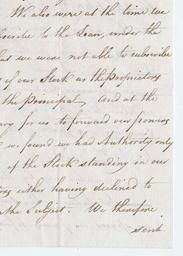 We also were at the time we
subscribe to the Loan, under the
that we were not able to subscribe
of our Stock as the Proprietors
the Principal, and at the
for us to forward our powers
we found we had Authority only
of the Stock standing in our
either having declined to
the subject. We therefore
sent